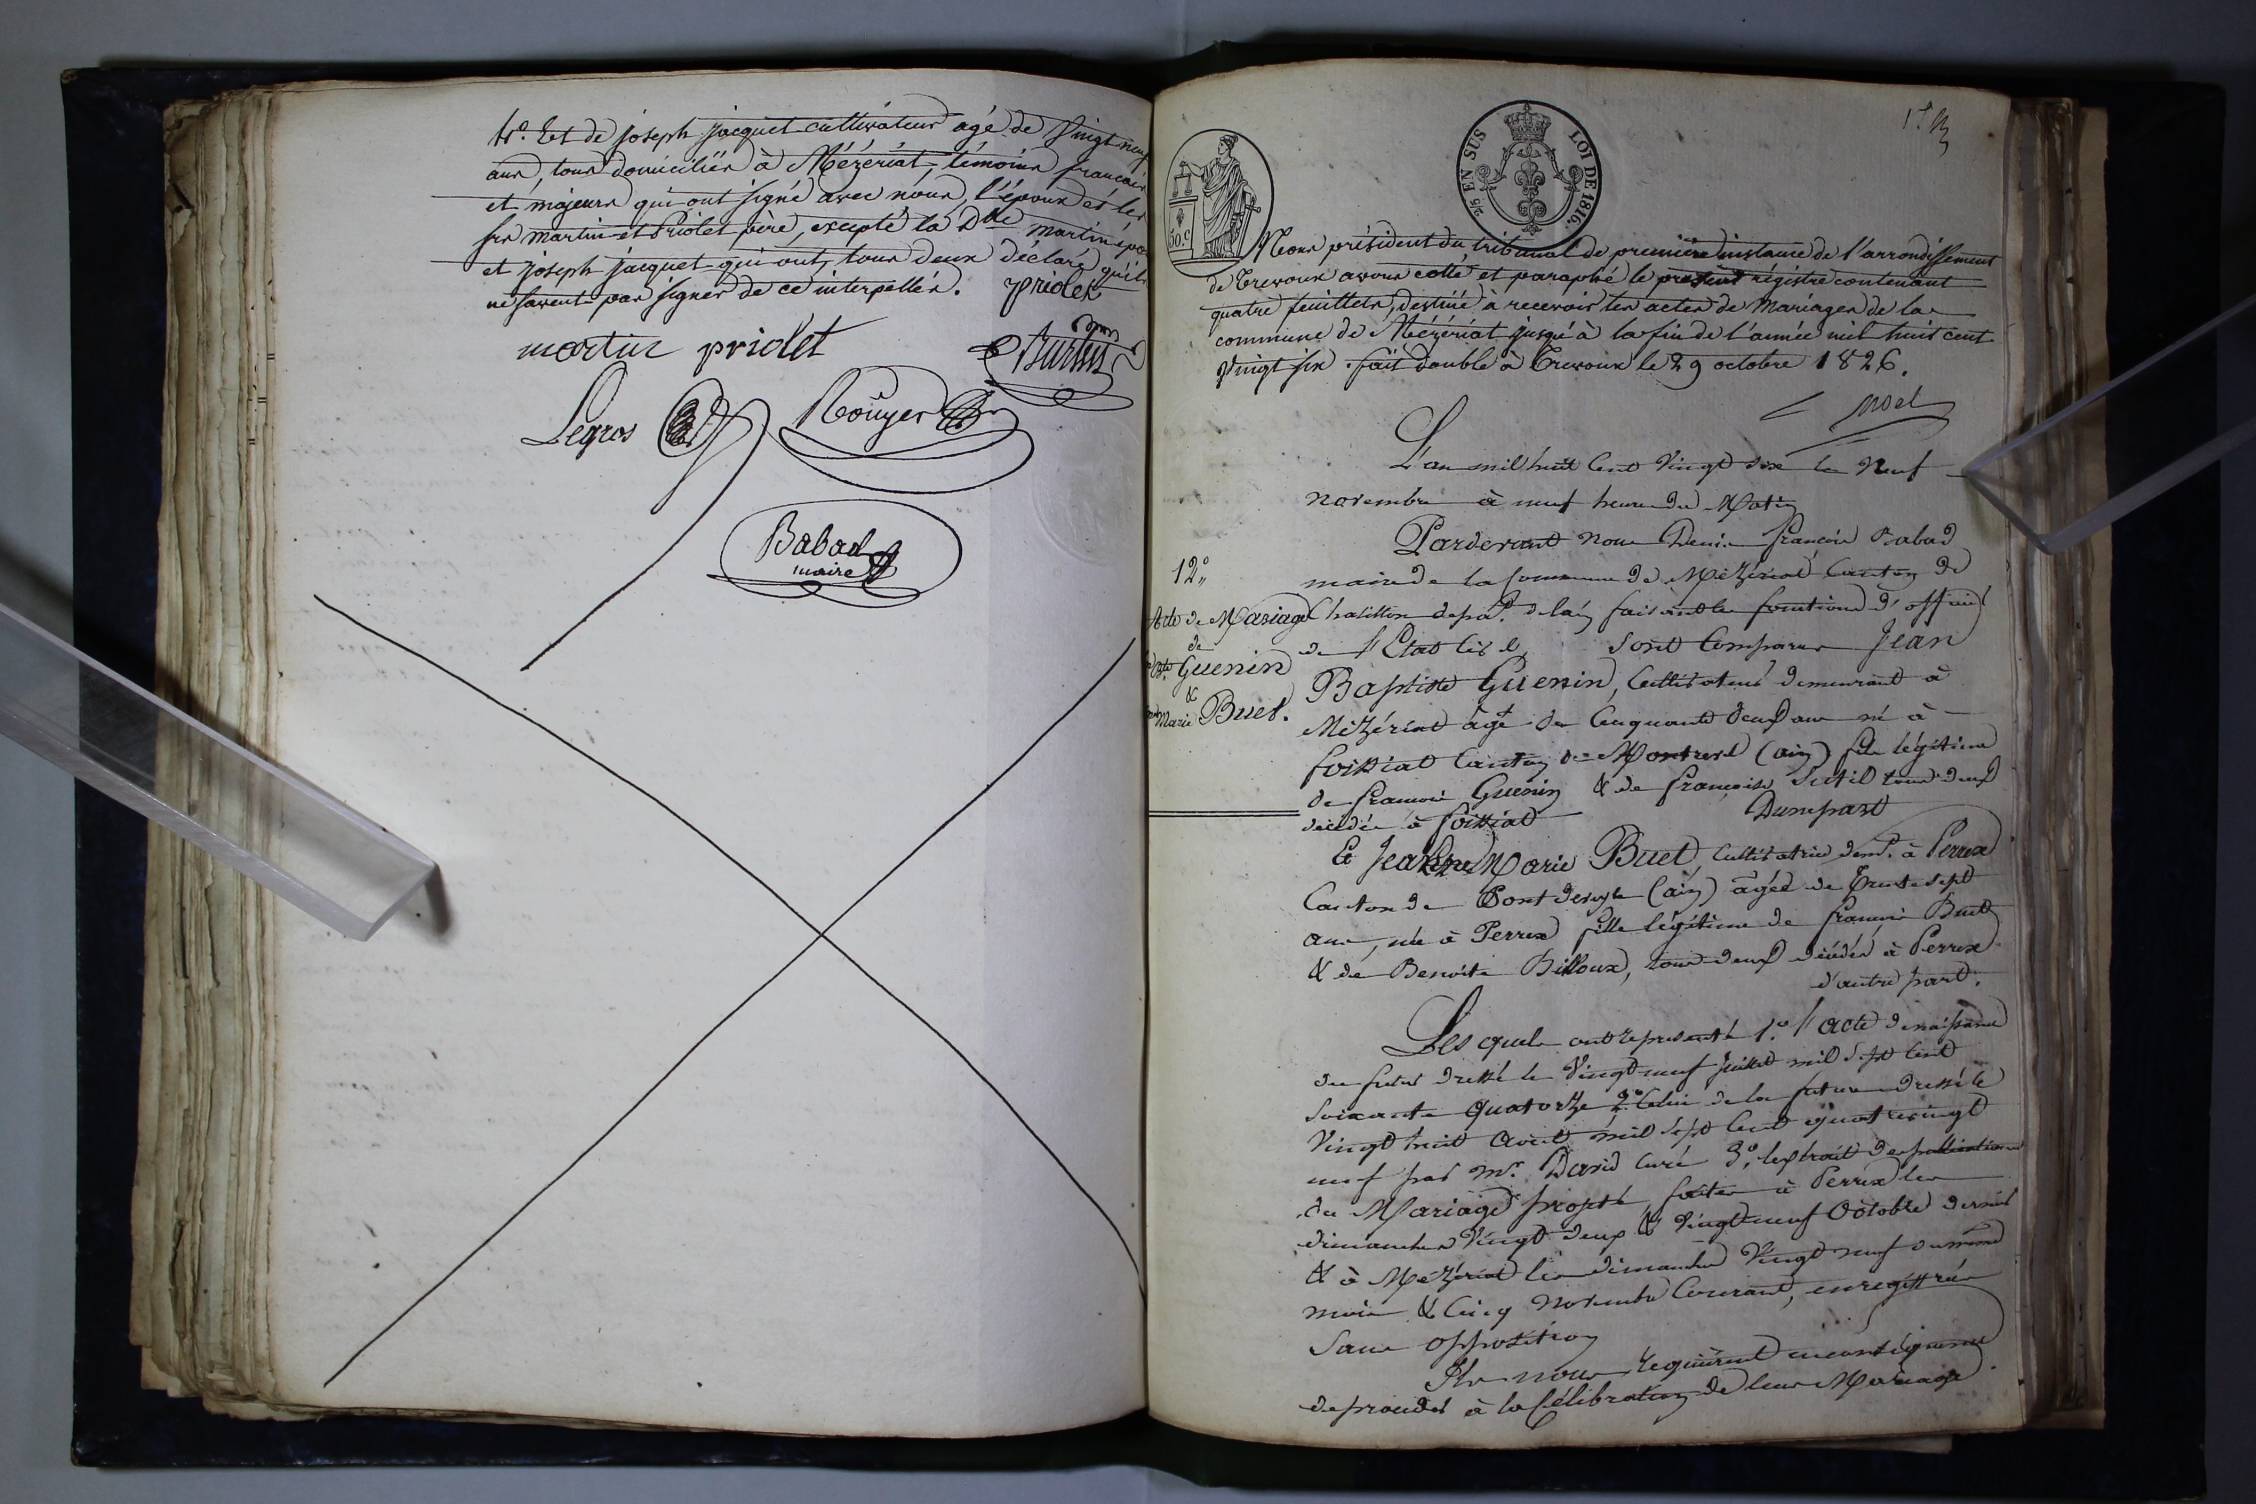 4°. Et de joseph jacquet cultivateur agé de vingt neuf
ans, tous domiciliés à Mézériat, témoins français
et majeurs qui ont signé avec nous, l'époux et les
srs martin et Priolet père, excepté la Dlle martin épou
et joseph jacquet qui ont, tous deux déclaré qu'ils
ne savent pas signer de ce interpellés. Priolet
martin priolet
Legros Rouyer
Babad
maire
2/5 EN SUS LOI DE 1816.
50.c
Nous président du tribunal de première instance de l'arrondissement
de Trevoux avons cotté et paraphé le présent régistre contenant
quatre feuillets, destiné à recevoir les actes de Mariages de la
commune de Mézériat jusqu'à la fin de l'année mil huit cent
vingt six. fait double à Trevoux le 29 octobre 1826.
Noel
L'an mil huit Cent Vingt six le Neuf
novembre à neuf heures du Matin
Pardevant nous Denis françois Babad
maire de la Commune de Mézériat Canton de
Chatillon depat. de l'ain faisant les fonctions d'officier
de l'Etat Civil, sont Comparus Jean
Baptiste Guenin, Cultivateur demeurant à
Mézériat âgé de Cinquante deux ans né à
foissiat Canton de Montrevel (ain) fils légitime
de françois Guenin & de françoise Sutil tous deux
décédés à foissiat D'une part
Et Jeanne Marie Buet Cultivatrice demt. à Perrex
Canton de Pont de veyle (ain) âgée de Trente sept
ans, née à Perrex fille légitime de françois Buet
& de Benoite Billoux, tous deux décédés à Perrex
d'autre part.
12°
Acte de Mariage
de
Bte. Guenin
&
Marie Buet.
Les quels ont représenté 1.° l'acte de naissance
du futur dressé le Vingt neuf juillet mil sept Cent
soixante quatorze 2.° Celui de la future dressé le
Vingt huit Août mil sept Cent quatre vingt
neuf par Mr. David Curé 3.° l'extrait des publications
du Mariage projetté faites à Perrex les
dimanches Vingt deux & Vingt neuf Octobre dernier
& à Mézériat les dimanches Vingt neuf du même
mois & Cinq Novembre Courant, enregistrées
Sans opposition
Ils nous requièrent en conséquence
de procéder à la Célébration de leur Mariage